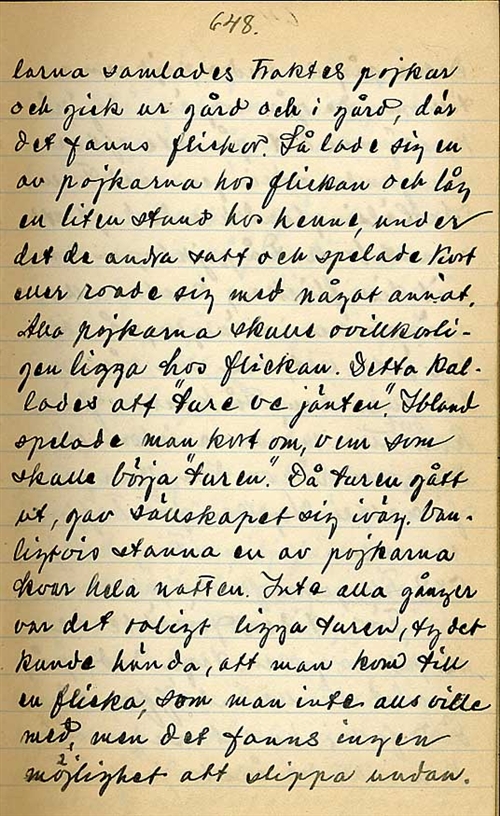 648.
larna samlades Traktes pojkar
och gick ur gård och i gård, där
det fanns flickor. Så lade sig en
av pojkarna hos flickan och låg
en liten stund hos henne, under
det de andra satt och spelade Kort
eller roade sig med något annat.
Alla pojkarna skulle ovillkorli-
gen ligga hos flickan. Detta kal-
lades att "ture ve jänten". Ibland
spelade man kort om, vem som
skulle börja "turen". Då turen gått
ut, gav sällskapet sig iväg. Van-
ligtvis stanna en av pojkarna
kvar hela natten. Inte alla gånger
var det roligt ligga turen, ty det
kunde hända, att man kom till
en flicka, som man inte alls ville
med, men det fanns ingen
möjlighet att slippa undan.